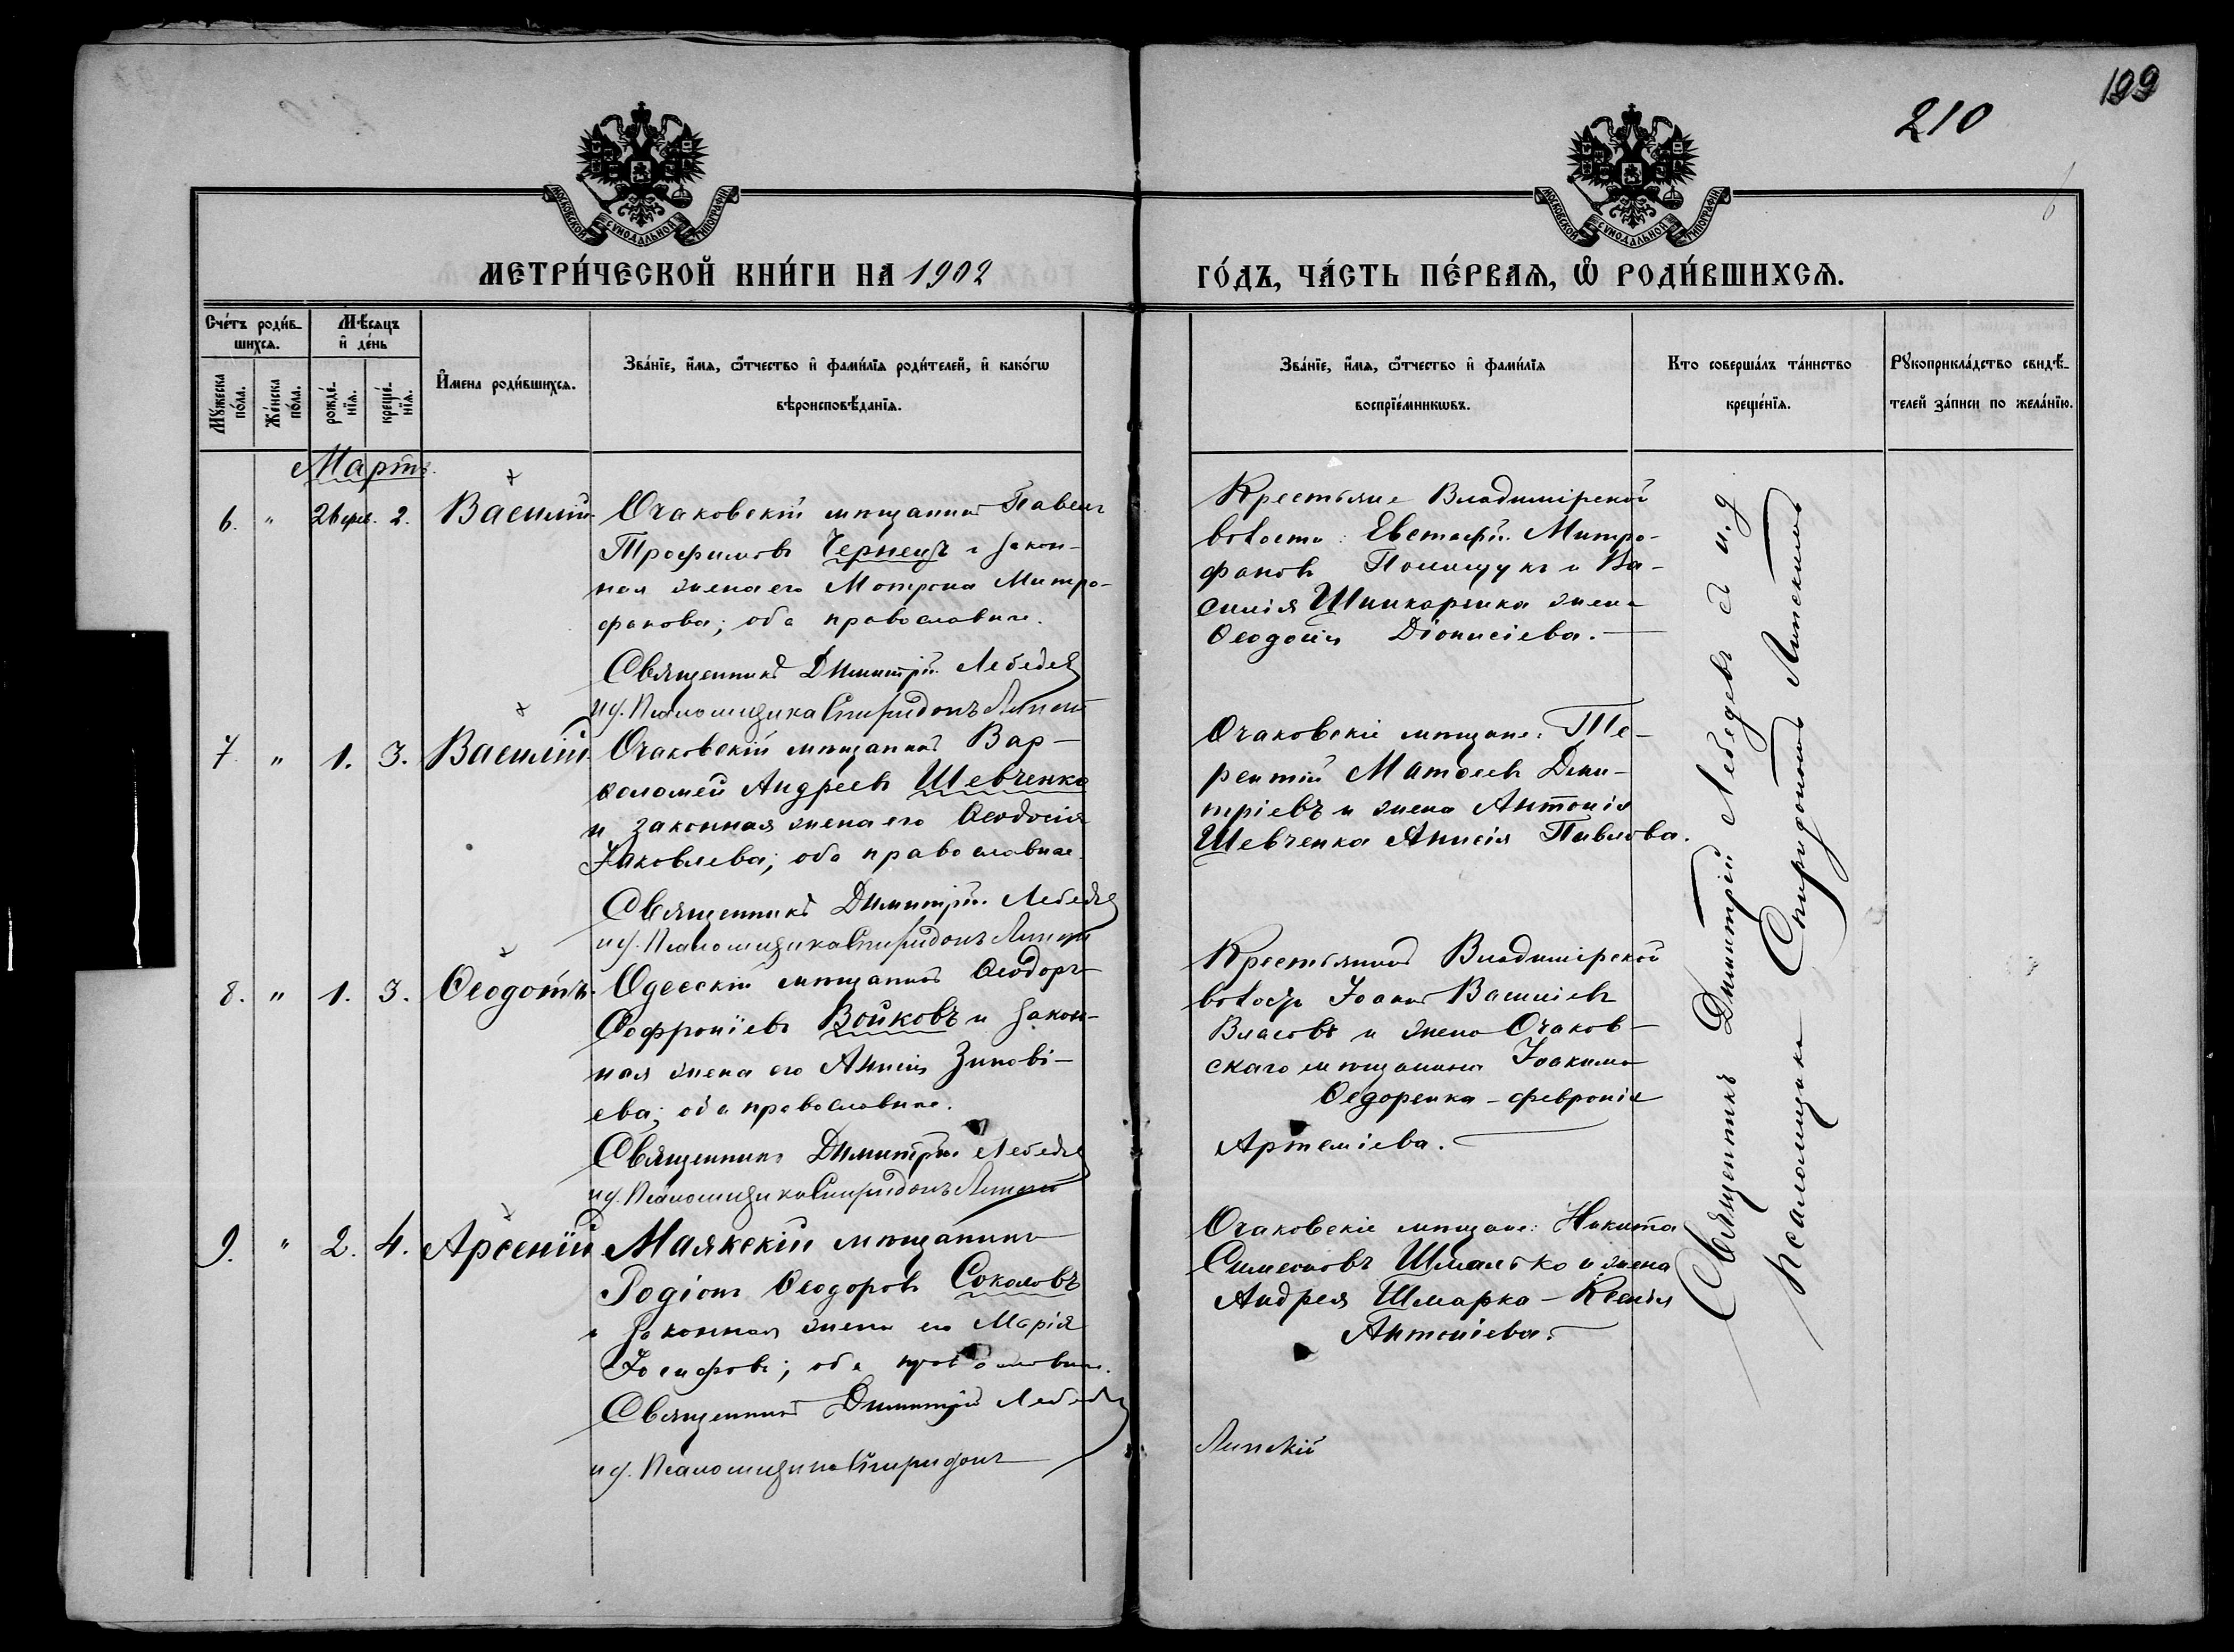 210
199
МОСКОВСКОЙ СѴНОДАЛЬНОЙ ТИПОГРАФІИ
МОСКОВСКОЙ СѴНОДАЛЬНОЙ ТИПОГРАФІИ
МЕТРИ́ЧЕСКОЙ КНИ́ГИ НА 1902
ГО́ДЪ, ЧА́СТЬ ПЕ́РВАЯ, Ѽ РОДИ́ВШИХСѦ.
Сче́тъ роди́в-
шихсѧ.
Мѣ́сѧцъ
и҆ де́нь
Мꙋ́жеска
по́ла.
Же́нска
по́ла.
рожде́-
нїѧ.
креще́-
нїѧ.
И҆́мена роди́вшихсѧ.
Зва́нїе, и҆́мѧ, ѻ҆́тчество и҆ фами́лїѧ роди́телей, и҆ како́гѡ
вѣроисповѣ́данїѧ.
Зва́нїе, и҆́мѧ, ѻ҆́тчество и҆ фами́лїѧ
воспрїе́мникѡвъ.
Кто соверша́лъ та́инство
креще́нїѧ.
Рꙋкоприкла́дство свидѣ́-
телей за́писи по жела́нїю.
Мартъ.
6. " 26 фев. 2. Василій.
Очаковскій мѣщанинъ Павелъ
Трофимовъ Чернецъ и закон-
ная жена его Мотрона Митро-
фанова; оба православные.
Священникъ Димитрій Лебедевъ
и д. Псаломщика Спиридонъ Липскій
Крестьяне Владимірской
волости: Евстафій Митро-
фановъ Полищукъ и Ва-
силія Шинкаренка жена
Ѳеодосія Діонисіева.
7 " 1. 3. Василій.
Очаковскій мѣщанинъ Вар-
ѳоломей Андреевъ Шевченко
и законная жена его Ѳеодосія
Іаковлева; оба православные.
Священникъ Димитрій Лебедевъ
и д. Псаломщика Спиридонъ Липскій
Очаковскіе мѣщане: Те-
рентій Матѳеевъ Дими-
тріевъ и жена Антонія
Шевченка Анисія Павлова.
8. " 1. 3. Ѳеодотъ.
Одесскій мѣщанинъ Ѳеодоръ
Софроніевъ Войковъ и закон-
ная жена его Анисія Зинові-
ева; оба православные.
Священникъ Димитрій Лебедевъ
и д. Псаломщика Спиридонъ Липскій
Крестьянинъ Владимірской
волости Іоаннъ Василіевъ
Власовъ и жена Очаков-
скаго мѣщанина Іоакима
Ѳедоренка - Февронія
Артеміева.
9. " 2. 4. Арсеній
Маякскій мѣщанинъ
Родіонъ Ѳеодоровъ Соколовъ
и законная жена его Марія
Іосифова; оба православные.
Священникъ Димитрій Лебедевъ
и д. Псаломщика Спиридонъ
Липскій
Очаковскіе мѣщане: Никита
Симеоновъ Шмалько и жена
Андрея Шмарка - Ксенія
Антоніева.
Священникъ Димитрій Лебедевъ съ и. д
Псаломщика Спиридономъ Липскимъ